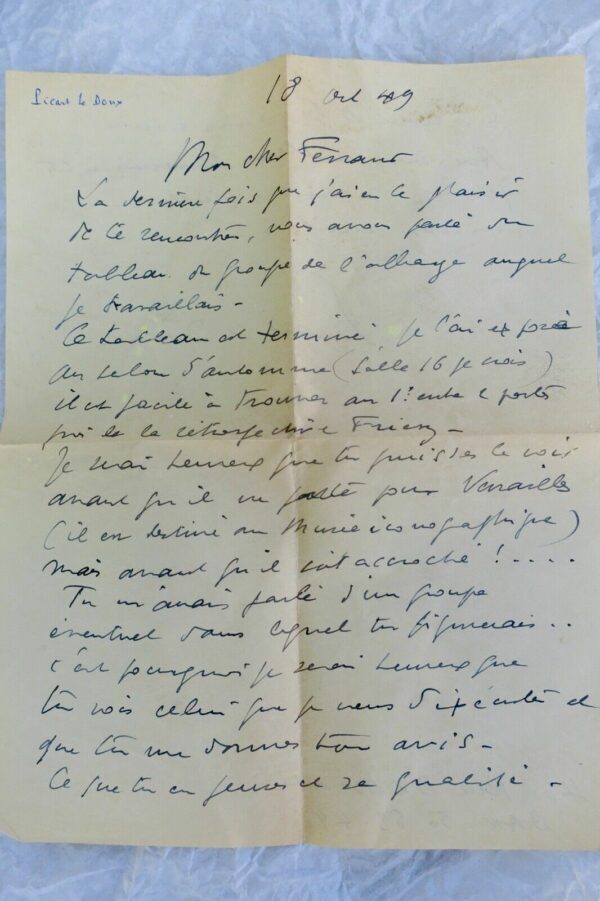 Picart le Doux
18 Oct 49
Mon cher Ferrand
La dernière fois que j'ai eu le plaisir
de te rencontrer, nous avons parlé du
tableau du groupe de l'abbaye auquel
je travaillais -
Ce tableau est terminé, je l'ai exposé
au salon d'automne (Salle 16 je crois)
il est facile à trouver au 1er entre 2 portes
près de la rétrospective Friesz -
Je serai heureux que tu puisses le voir
avant qu'il ne parte pour Versailles
(il est destiné au Musée iconographique)
mais avant qu'il soit accroché !.....
Tu m'avais parlé d'un groupe
éventuel dans lequel tu figurerais ..
c'est pourquoi je serai heureux que
tu vois celui que je viens d'exécuter et
que tu me donnes ton avis -
Ce que tu en penses et sa qualité -